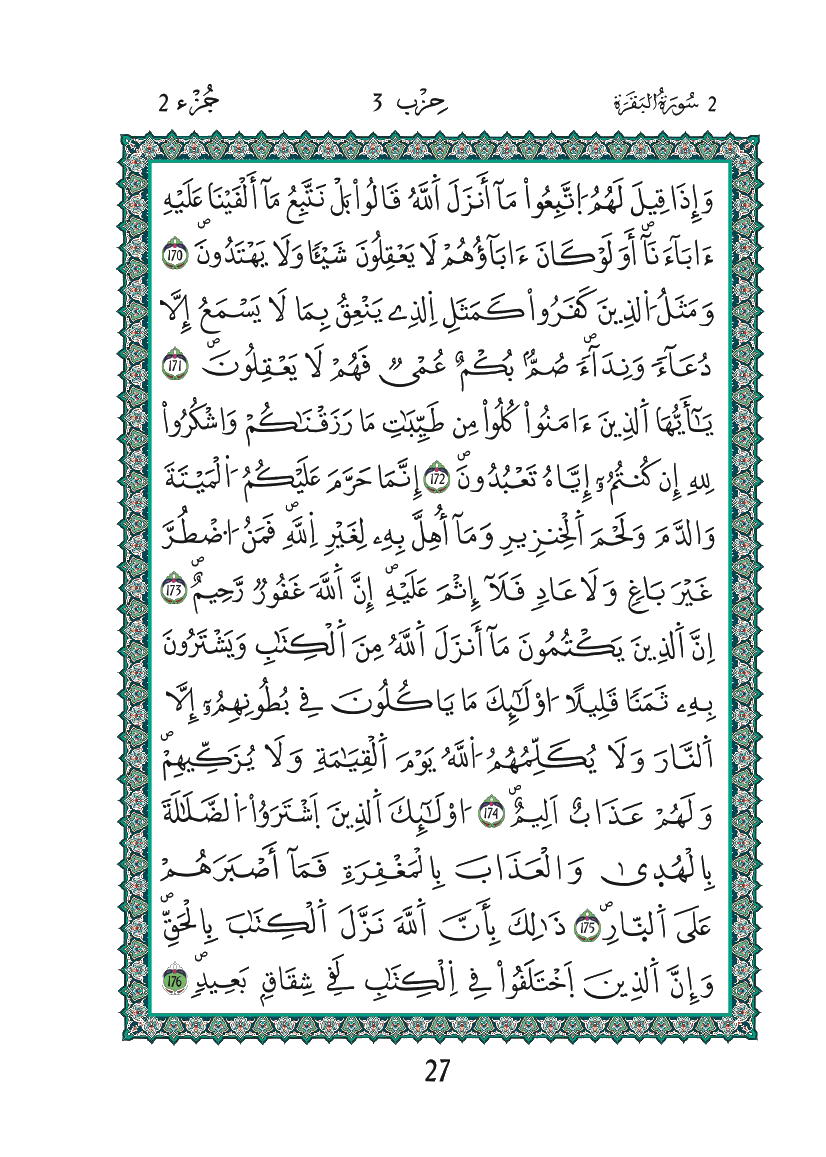 2 سُورَةُ الْبَقَرَةِ حِزْب 3 جُزْء 2
وَإِذَا قِيلَ لَهُمُ اَ۪تَّبِعُواْ مَآ أَنزَلَ اَ۬للَّهُ قَالُواْ بَلْ نَتَّبِعُ مَآ أَلْفَيْنَا عَلَيْهِ
ءَابَآءَنَآۖ أَوَلَوْ كَانَ ءَابَآؤُهُمْ لَا يَعْقِلُونَ شَيْـٔاٗ وَلَا يَهْتَدُونَۖ 170
وَمَثَلُ اُ۬لذِينَ كَفَرُواْ كَمَثَلِ اِ۬لذِے يَنْعِقُ بِمَا لَا يَسْمَعُ إِلَّا
دُعَآءٗ وَنِدَآءٗۖ صُمُّۢ بُكْمٌ عُمْيٞ فَهُمْ لَا يَعْقِلُونَۖ 171
يَـٰٓأَيُّهَا اَ۬لذِينَ ءَامَنُواْ كُلُواْ مِن طَيِّبَٰتِ مَا رَزَقْنَٰكُمْ وَاشْكُرُواْ
لِلهِ إِن كُنتُمُۥٓ إِيَّاهُ تَعْبُدُونَۖ 172 إِنَّمَا حَرَّمَ عَلَيْكُمُ اُ۬لْمَيْتَةَ
وَالدَّمَ وَلَحْمَ اَ۬لْخِنزِيرِ وَمَآ أُهِلَّ بِهِۦ لِغَيْرِ اِ۬للَّهِۖ فَمَنُ اُ۟ضْطُرَّ
غَيْرَ بَاغٖ وَلَا عَادٖ فَلَآ إِثْمَ عَلَيْهِۖ إِنَّ اَ۬للَّهَ غَفُورٞ رَّحِيمٌۖ 173
اِنَّ اَ۬لذِينَ يَكْتُمُونَ مَآ أَنزَلَ اَ۬للَّهُ مِنَ اَ۬لْكِتَٰبِ وَيَشْتَرُونَ
بِهِۦ ثَمَنٗا قَلِيلًا اُوْلَٰٓئِكَ مَا يَاكُلُونَ فِے بُطُونِهِمُۥٓ إِلَّا
اَ۬لنَّارَ وَلَا يُكَلِّمُهُمُ اُ۬للَّهُ يَوْمَ اَ۬لْقِيَٰمَةِ وَلَا يُزَكِّيهِمْۖ
وَلَهُمْ عَذَابٌ اَلِيمٌۖ 174 اُوْلَٰٓئِكَ اَ۬لذِينَ اَ۪شْتَرَوُاْ اُ۬لضَّلَٰلَةَ
بِالْهُد۪يٰ وَالْعَذَابَ بِالْمَغْفِرَةِ فَمَآ أَصْبَرَهُمْ
عَلَي اَ۬لنّ۪ارِۖ 175 ذَٰلِكَ بِأَنَّ اَ۬للَّهَ نَزَّلَ اَ۬لْكِتَٰبَ بِالْحَقِّۖ
وَإِنَّ اَ۬لذِينَ اَ۪خْتَلَفُواْ فِے اِ۬لْكِتَٰبِ لَفِے شِقَاقِۢ بَعِيدٖۖ 176
27